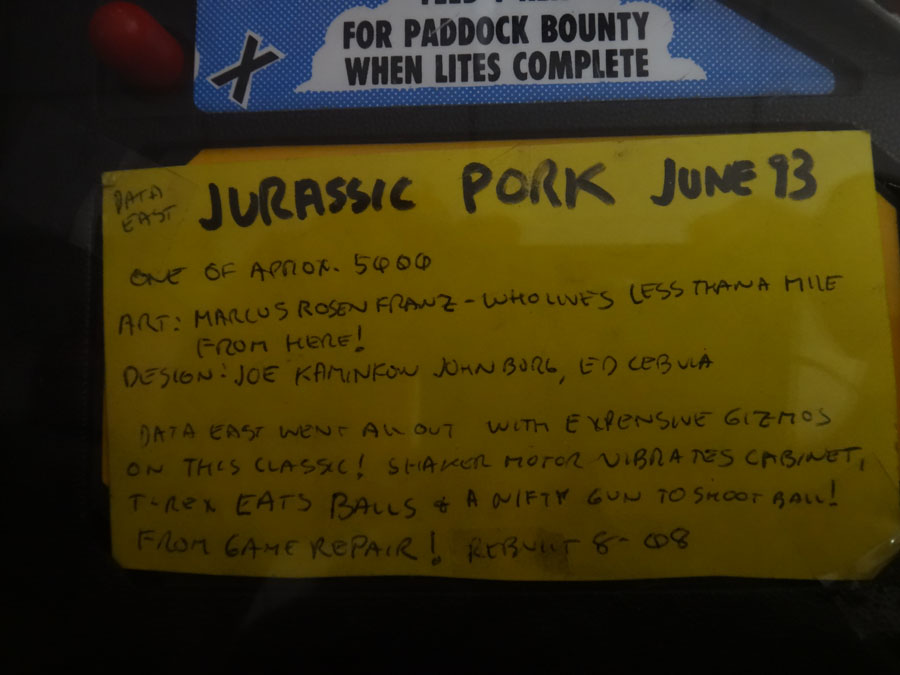 FOR PADDOCK BOUNTY
WHEN LITES COMPLETE
X
DATA
EAST
JURASSIC PORK JUNE 93
ONE OF APROX. 5000
ART: MARCUS ROSENFRANZ - WHO LIVES LESS THAN A MILE
FROM HERE!
DESIGN: JOE KAMINKOW JOHN BORG, ED CEBULA
DATA EAST WENT ALL OUT WITH EXPENSIVE GIZMOS
ON THIS CLASSIC! SHAKER MOTOR VIBRATES CABINET,
T-REX EATS BALLS & A NIFTY GUN TO SHOOT BALL!
FROM GAME REPAIR! REBUILT 8-08